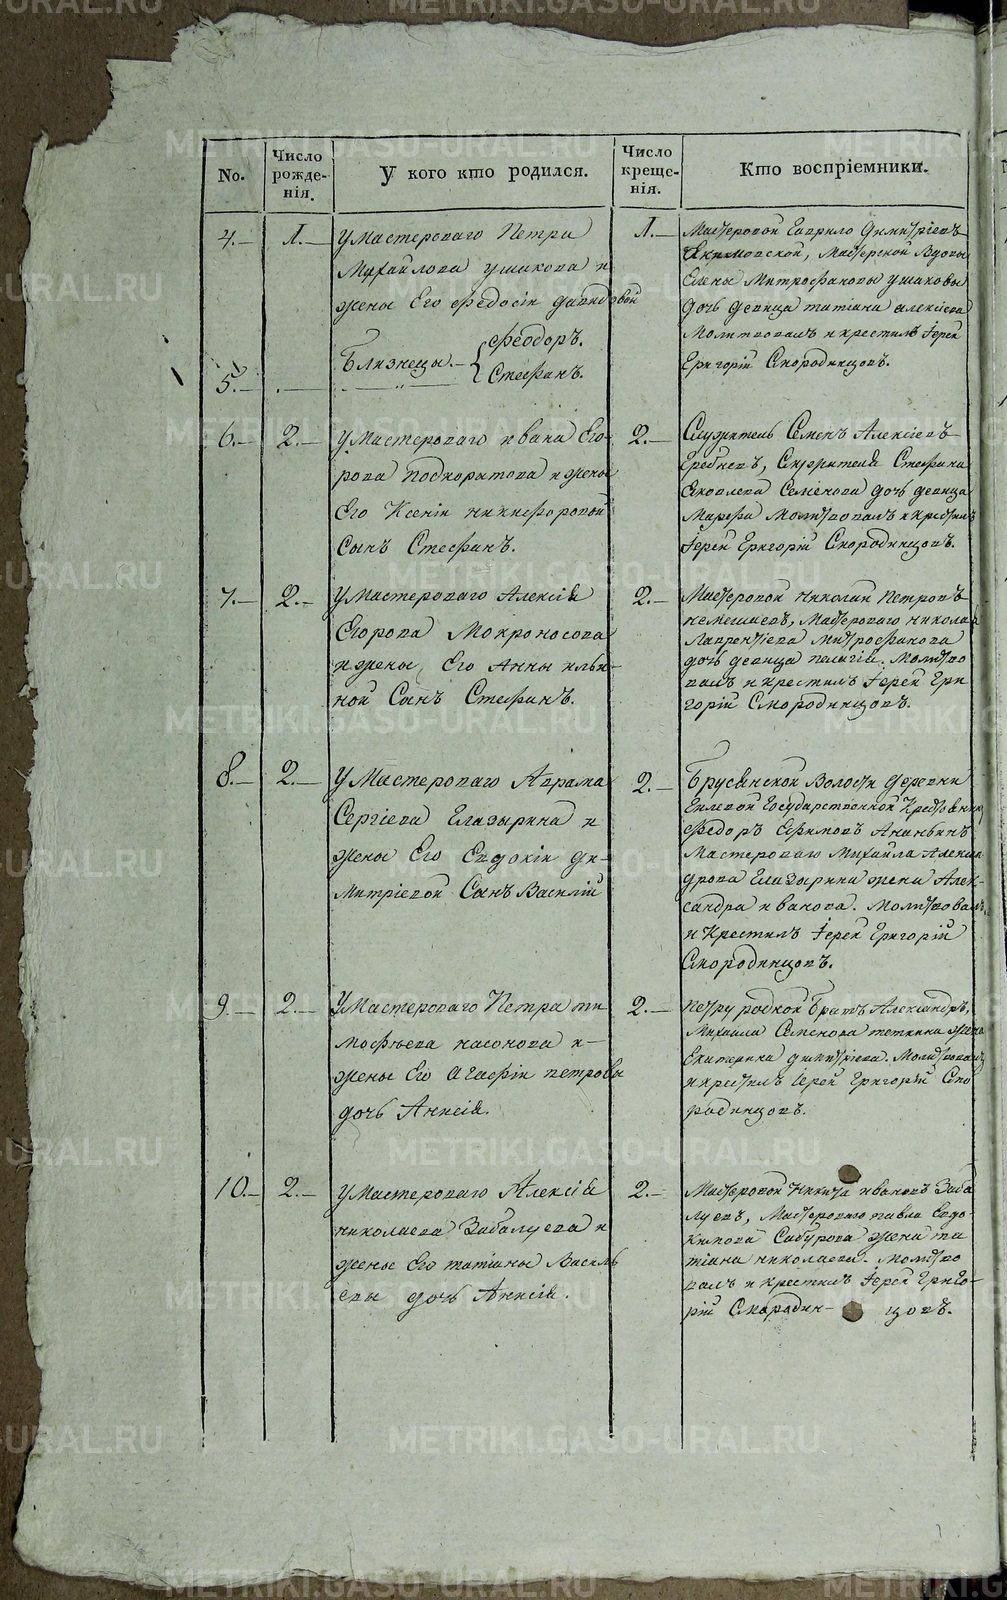 No.
Число рожде-нія.
У кого кто родился.
Число креще-нія.
Кто воспріемники.
4.— 1.—
У Мастероваго Петра
Михайлова Ушакова и
жены Его Федосіи Давидовой
Близнецы.— { Феодоръ.
5.— Стефанъ.
1.—
Мастеровой Гаврило Димитріевъ
Екимовской, Мастерской Вдовы
Елены Митрофановы Ушаковы
дочь девица Татіана Алексіева
Молитвовалъ и крестилъ Іерей
Григорій Смородинцовъ.
6.— 2.—
У Мастероваго Ивана Его-
рова Подкоритова и жены
Его Ксеніи Никифоровой
Сынъ Стефанъ.
2.—
Служитель Семенъ Алексіевъ
Гребневъ, Служителя Стефана
Яковлева Семенова дочь девица
Марфа Молитвовалъ и крестилъ
Іерей Григорій Смородинцовъ.
7.— 2.—
У Мастероваго Алексія
Егорова Мокроносова
и жены Его Анны Ильи-
ной Сынъ Стефанъ.
2.—
Мастеровой Николай Петровъ
Немешаевъ, Мастероваго Никола
Лаврентіева Митрофанова
дочь девица Пелагій. Молитво
валъ и крестилъ Іерей Гри
горій Смородинцовъ.
8.— 2.—
У Мастероваго Аврама
Сергіева Глазырина и
жены Его Евдокіи Ди-
митріевой Сынъ Василій
2.—
Брусянской Волости деревни
Государственной Крестьянин
Федоръ Ефимовъ Ананьинъ
Мастероваго Михайла Алексан
дрова Глазырина жена Алек-
сандра Иванова. Молитвовалъ
и Крестилъ Іерей Григорій
Смородинцовъ.
9.— 2.—
У Мастероваго Петра Ти
мофѣева Насонова и
жены Его Агафіи Петровы
дочь Анисія.
2.—
Петру родной Братъ Александръ,
Михаила Семенова Теткина жена
Екатерина Димитріева. Молитвовалъ
и крестилъ Іерей Григорій Смо
родинцовъ.
10.— 2.—
У Мастероваго Алексія
Николаева Забалуева и
жены Его Татіаны Василь
евы дочь Анисія.
2.—
Мастеровой Никита Ивановъ Заба
луевъ, Мастероваго Павла Евдо-
кимова Сабурова жена Та
тіана Николаева. Молитво
валъ и крестилъ Іерей Григо-
рій Смородин- цовъ.
METRIKI.GASO-URAL.RU